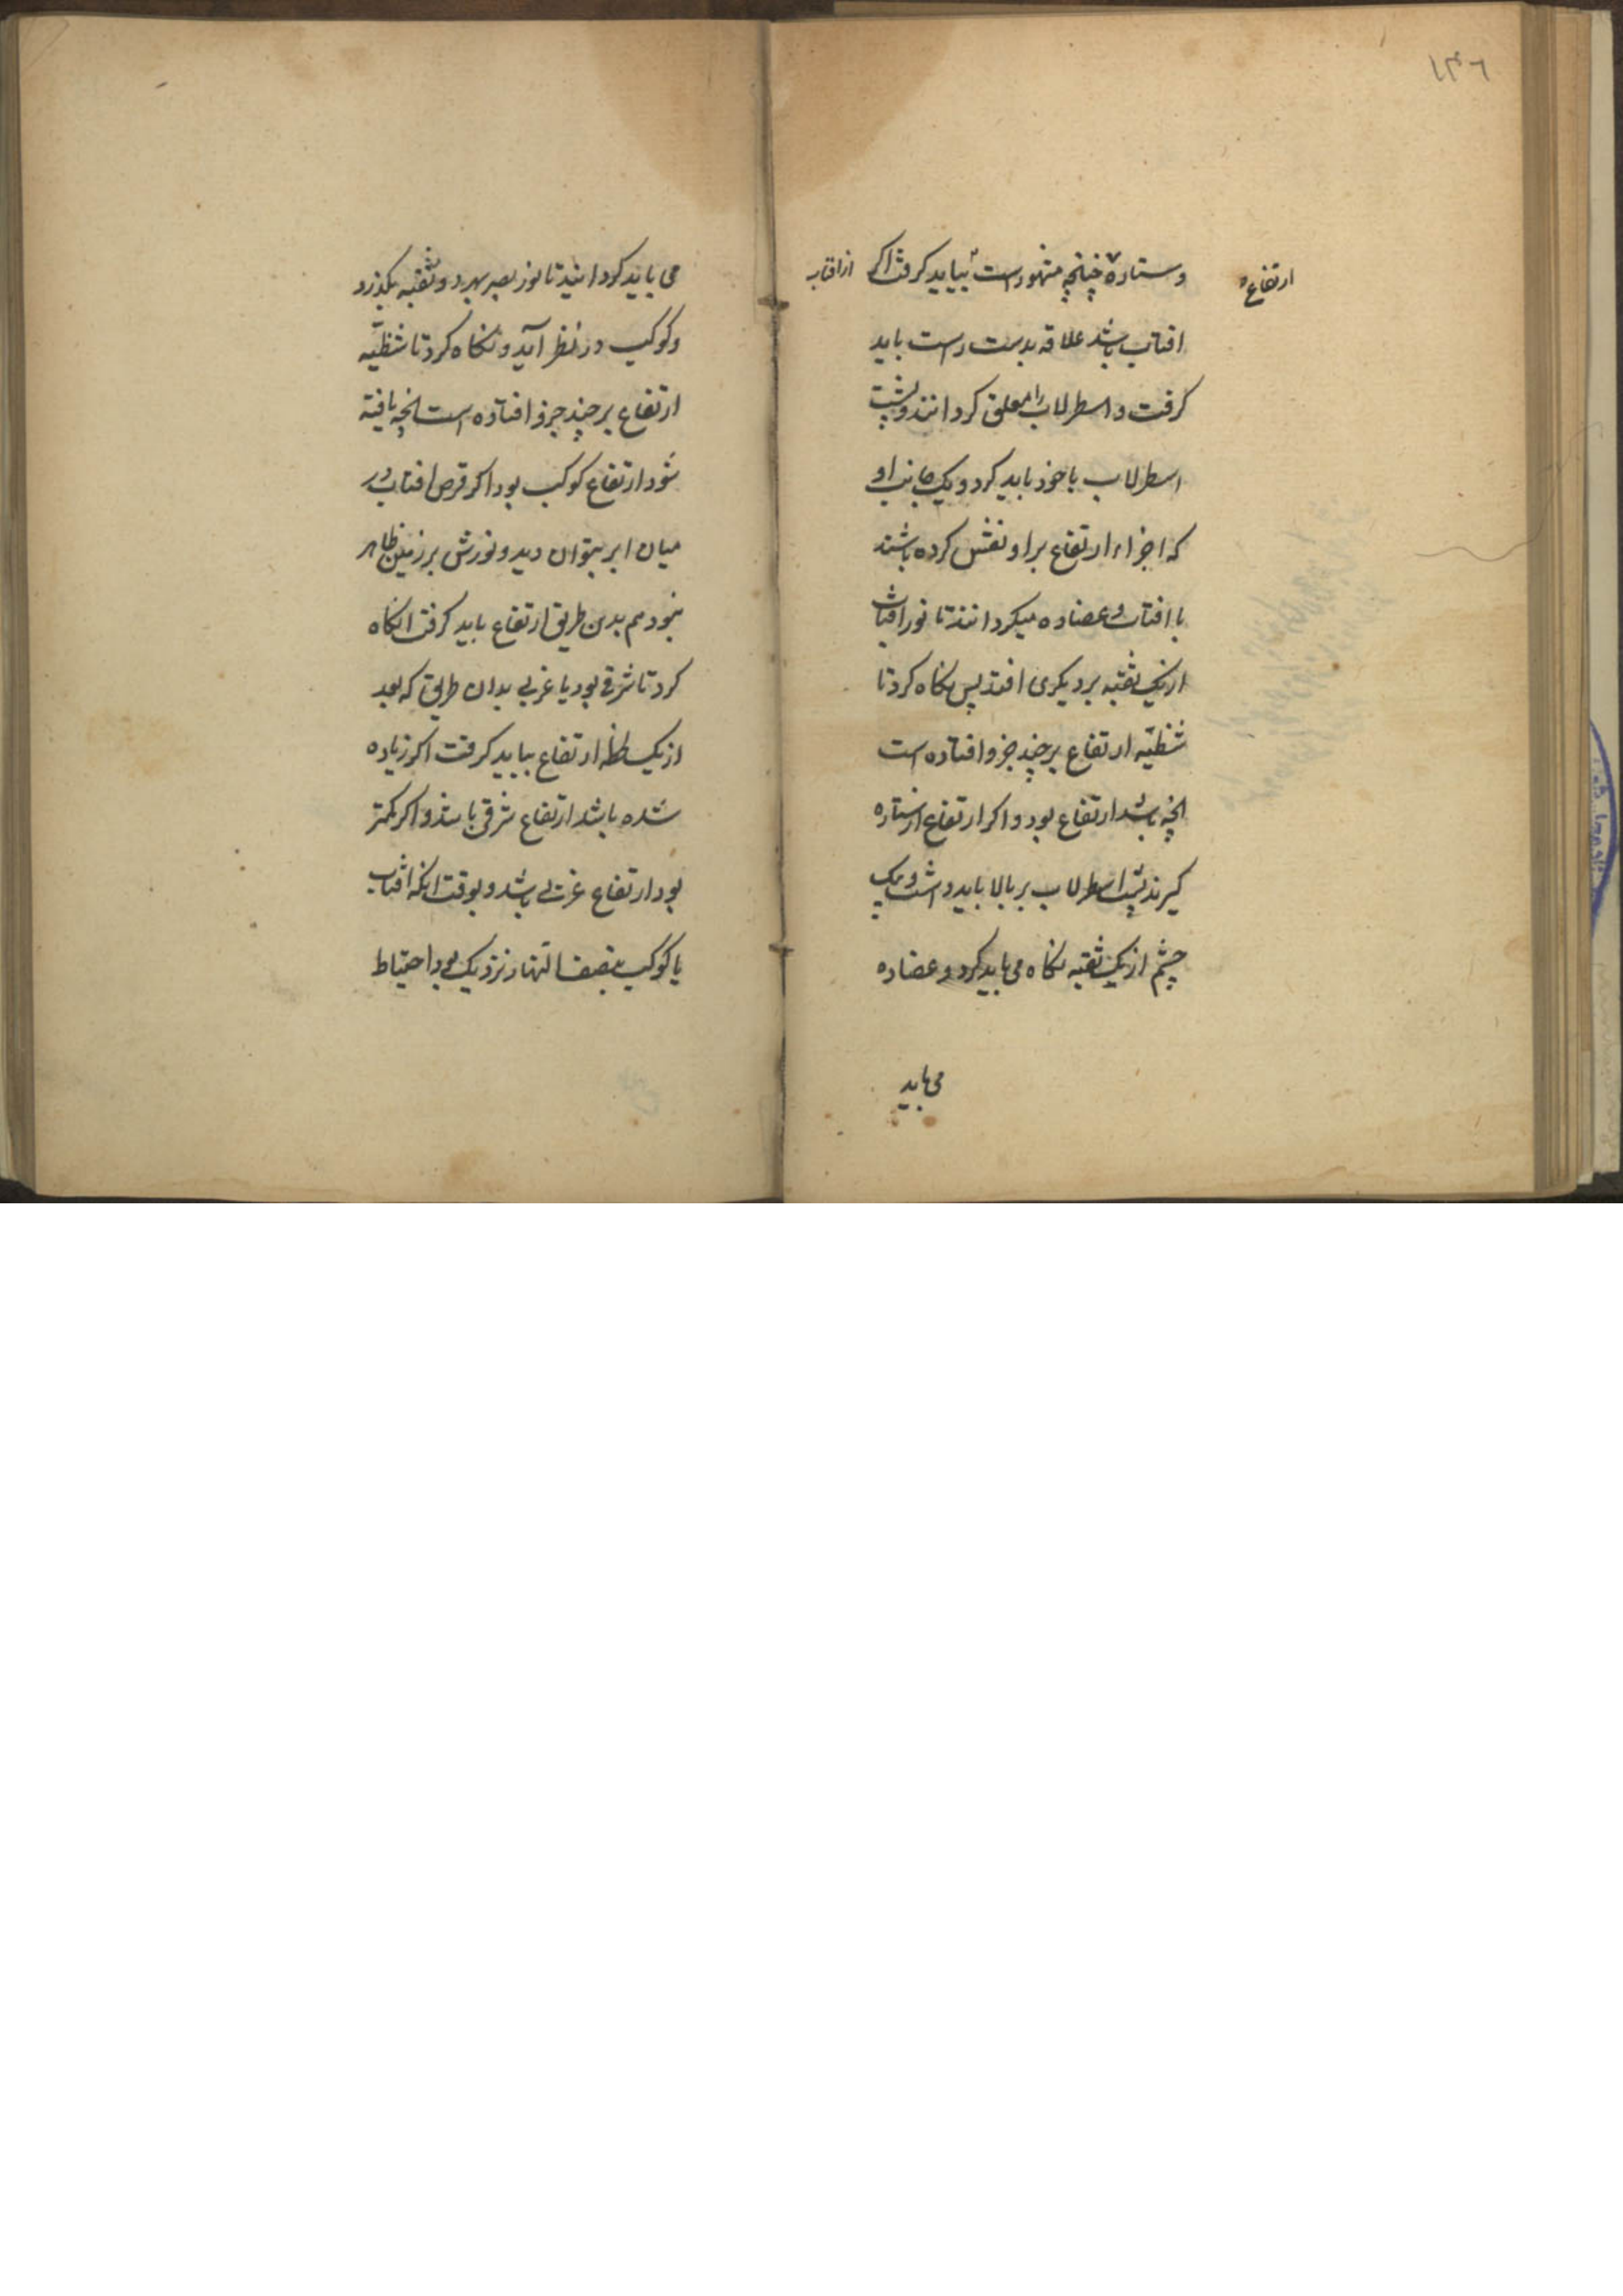 ١٣٦
وستاره چنانچه مشهورست بیاید کرفت اکر
ارتفاع
از افتاب
افتاب باشد علاقه بدست راست باید
کرفت و اسطرلاب را معلق کردانند و پشت
اسطرلاب با خود باید کرد و یک جانب او
که اجزاء ارتفاع بر او نقش کرده باشند
با افتاب و عضاده میکردانند تا نور افتاب
از یک ثقبه بر دیکری افتد پس نکاه کرد تا
شظیّه ارتفاع بر چند جزو افتاده است
انچه باشد ارتفاع بود و اکر ارتفاع از ستاره
کیرند پشت اسطرلاب بر بالا باید داشت و یک
چشم از یک ثقبه نکاه می باید کرد و عضاده
می باید
می باید کردانید تا نور بصر بهر دو ثقبه بکذرد
و کوکب در نظر آید و نکاه کرد تا شظیّه
ارتفاع بر چند جزو افتاده است انچه یافته
شود ارتفاع کوکب بود اکر قرص افتاب در
میان ابر بتوان دید و نورش بر زمین ظاهر
نبود هم بدین طریق ارتفاع باید کرفت انکاه
کرد تا شرقی بود یا غربی بدان طریق که بعد
از یک لحظه ارتفاع بباید کرفت اکر زیاده
شده باشد ارتفاع شرقی باشد و اکر کمتر
بود ارتفاع غربی باشد و بوقت انکه افتاب
یا کوکب بنصف النهار نزدیک بود احتیاط